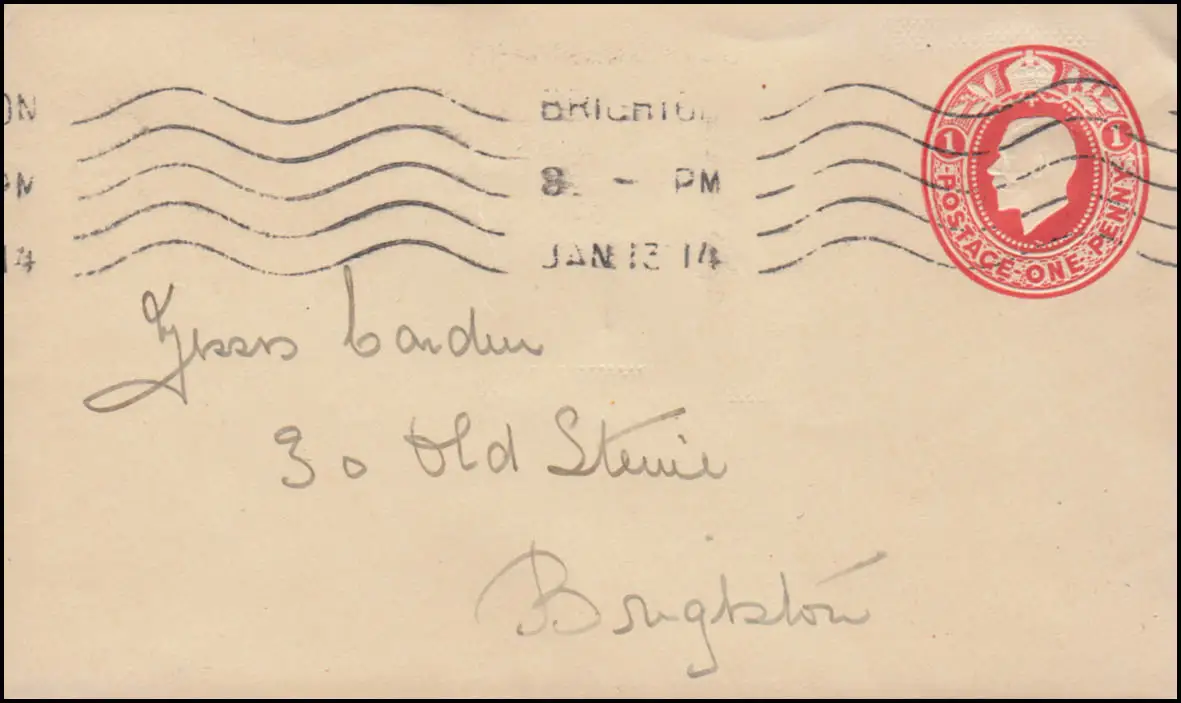 ON BRIGHTON
PM 8. - PM
14 JAN 13 14
1 1
POSTAGE ONE PENNY
Messrs Carden
30 Old Steine
Brighton